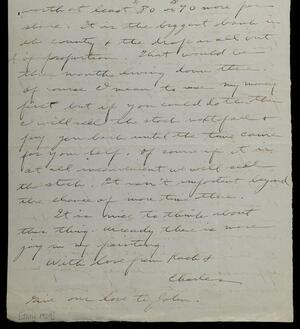 worth at least 80 or 90 more per
share. It is the biggest bank in
the county & the drop is all out
of proportion. That would be
three months living down there.
Of course I mean to use my money
first but if you could do this then
I will sell the stock next fall &
pay you back until the time comes
for your help. Of course if it is
at all inconvenient we will sell
the stock. It isn't important beyond
the chance of more time there.
It is nice to think about
this thing. Already there is more
joy in my painting.
With love from Rach &
Charles
Give our love to John.